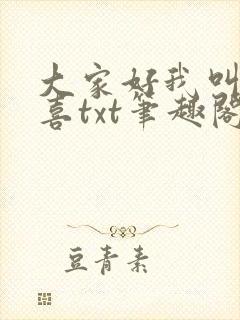 大家好我叫
喜txt笔趣阁
豆青素